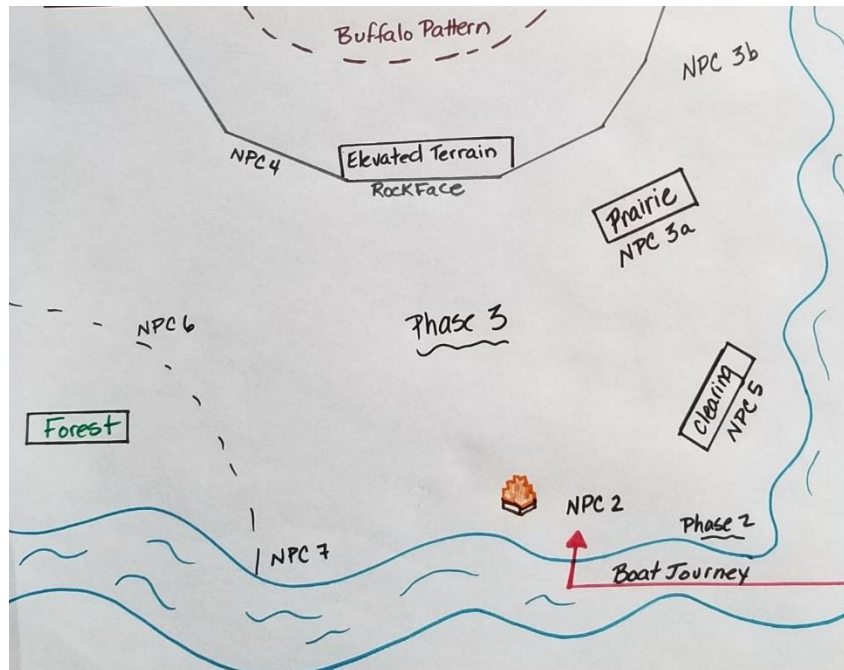 Buffalo Pattern
NPC 3b
NPC 4
Elevated Terrain
RockFace
Prairie
NPC 3a
NPC 6
Phase 3
clearing
NPC 5
Forest
NPC 2
Phase 2
NPC 7
Boat Journey